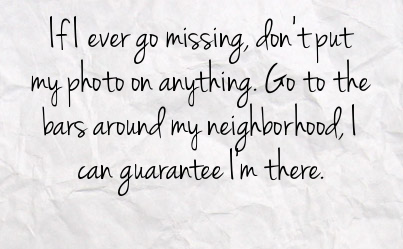 If I ever go missing, don't put
my photo on anything. Go to the
bars around my neighborhood, I
can guarantee I'm there.